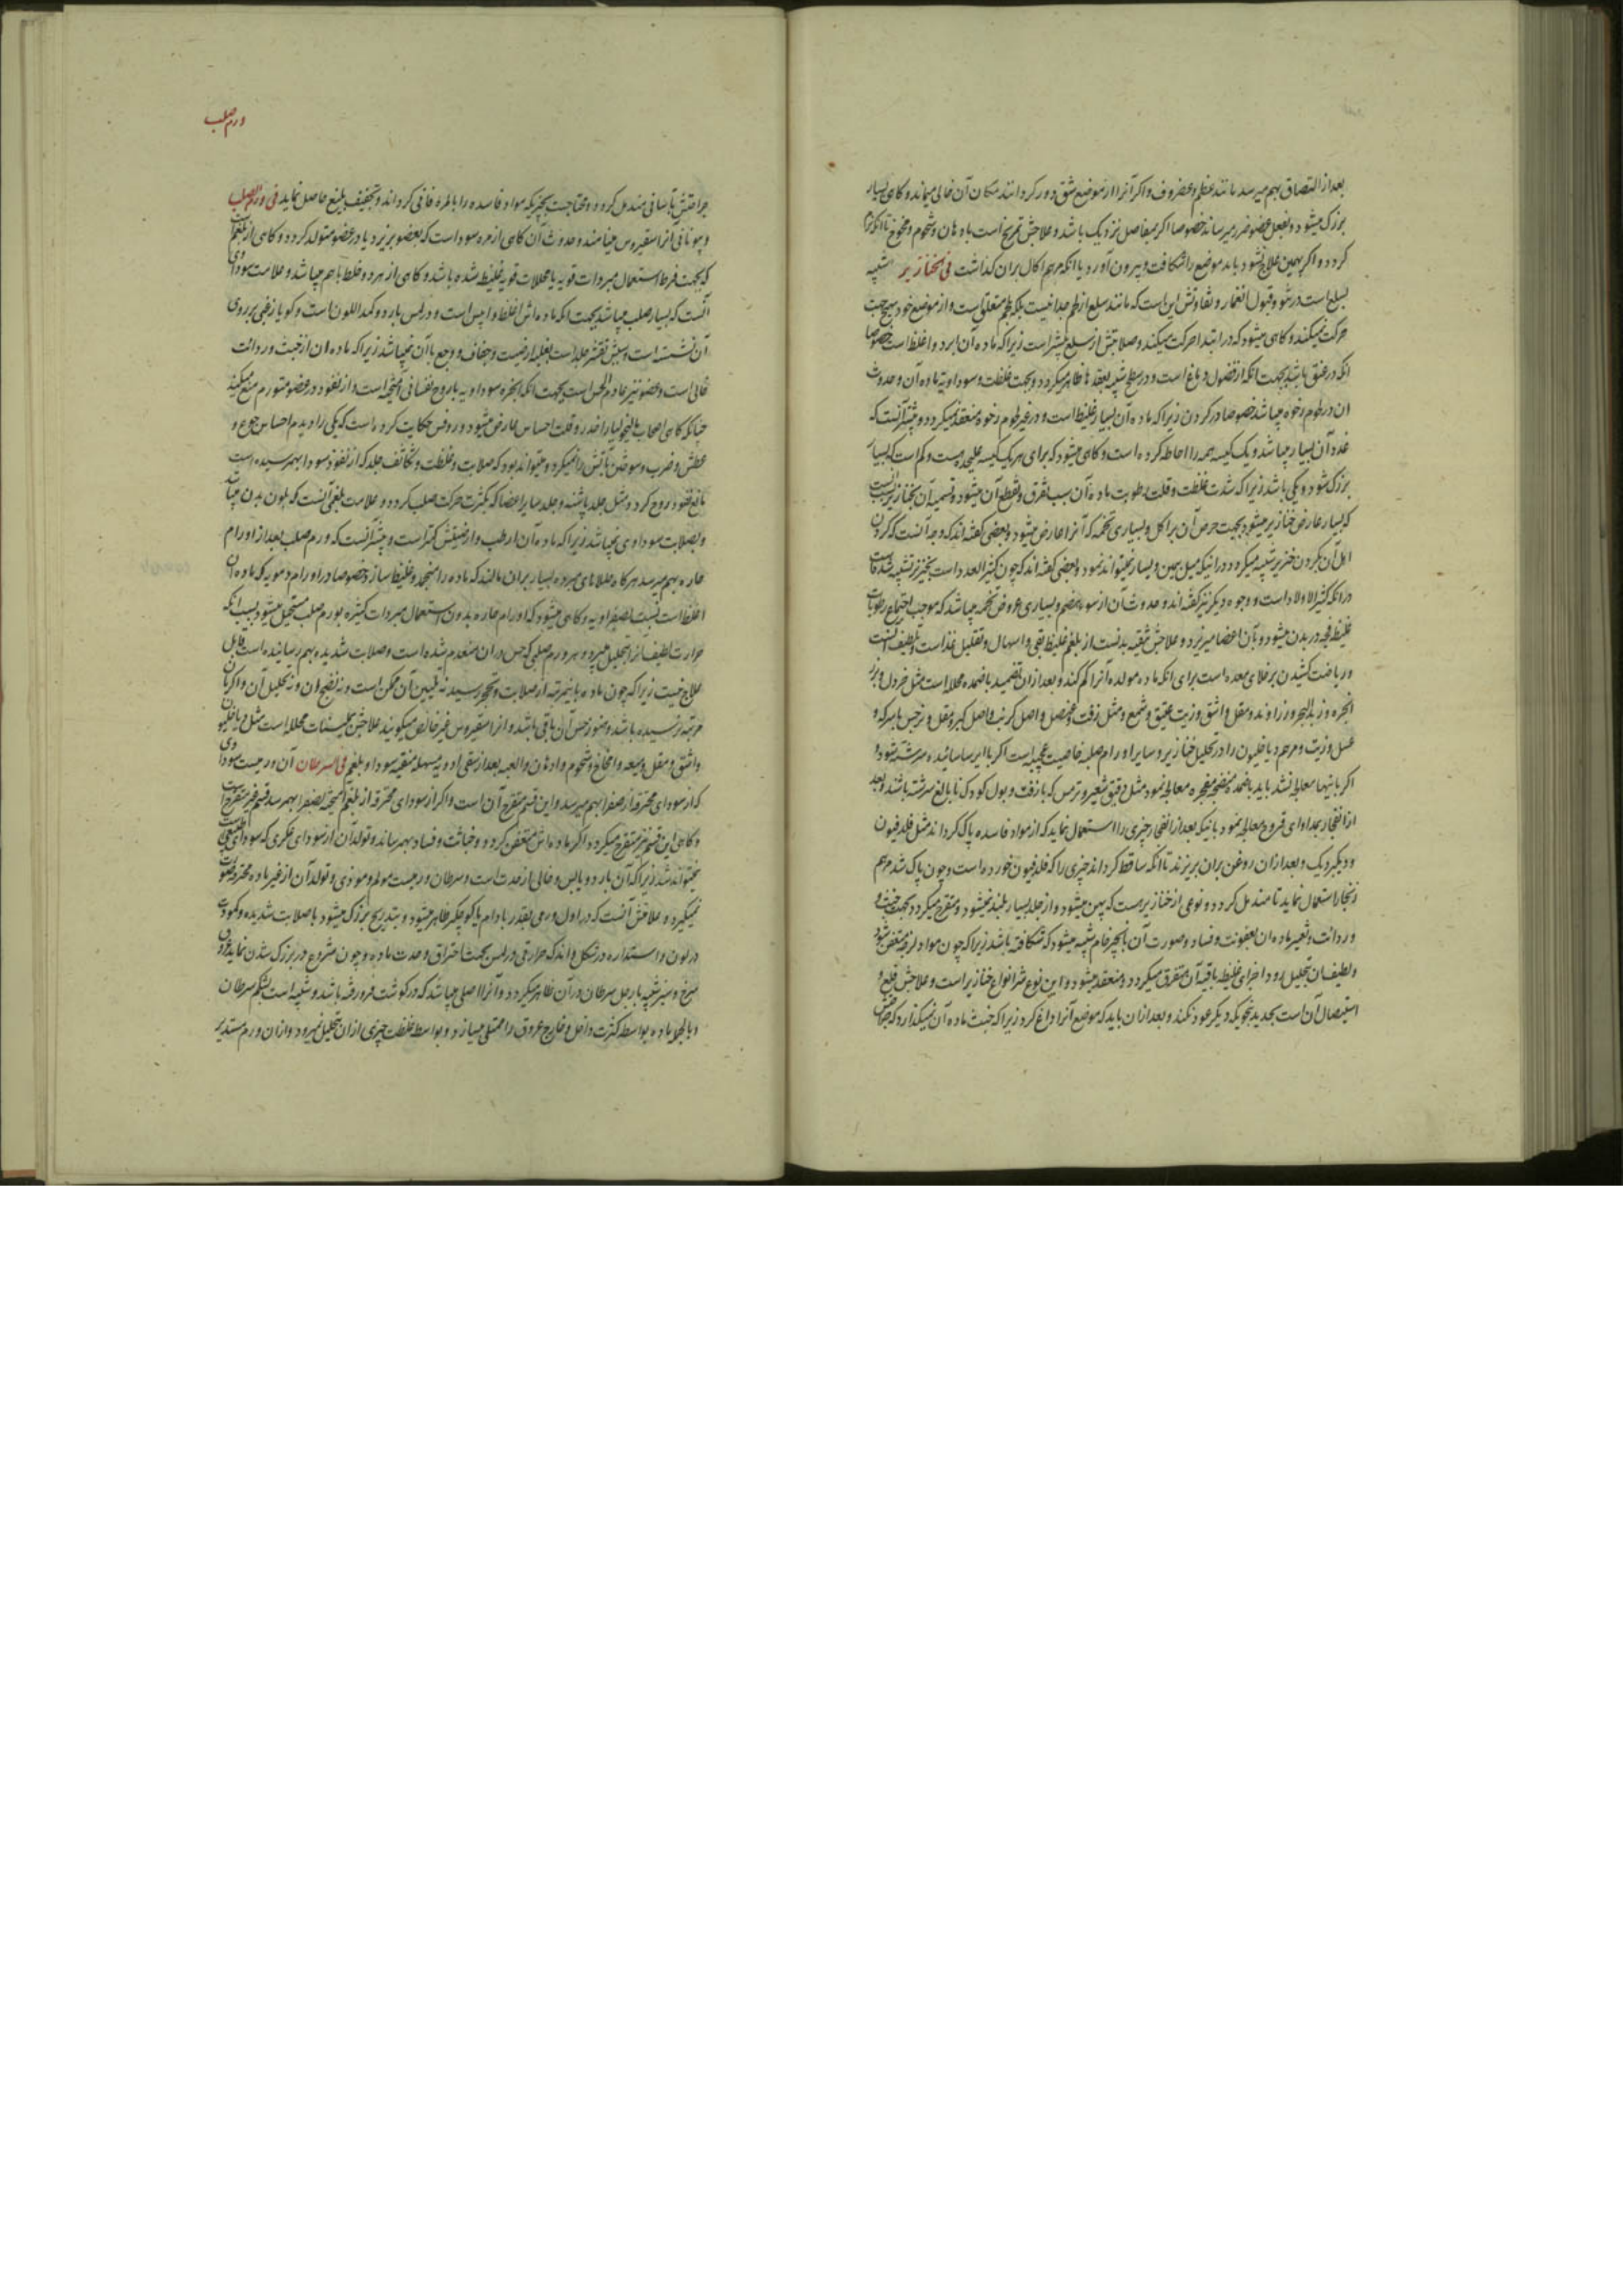 بعد از التصاق بهم میرسد مانند عظم و غضروف و اگر آنرا از موضع شق دور کردانند مکان آن خالی میماند و کاهی بسیار
بزرک میشود و بفعل عضو ضرر میرساند خصوصا اکر بمفاصل نزدیک باشد و علاجش تمریخ است بادهان و شحوم و مخوخ تا آنکه نرم
کردد و اکر بهمین علاج نشود باید موضع را شکافت و بیرون آورد یا آنکه مرهم اکال بران کذاشت فی الخنازیر شبیه
بسلع است در نتو و قبول انغمار و تفاوتش این است که مانند سلع از لحم جدا نیست بلکه بلحم متعلق است و از موضع خود بهیچ جهت
حرکت نمیکند و کاهی میشود که در ابتدا حرکت میکند و صلابتش از سلع بیشتر است زیرا که ماده آن ابرد و اغلظ است خصوصا
آنکه در عنق باشد بجهت آنکه از فضول دماغ است و در سطح شبیه بعقدها ظاهر میکردد و بجهت غلظت و سوداویة ماده آن و حدوث
ان در لحوم رخوه میباشد خصوصا در کردن زیرا که ماده آن بسیار غلیظ است و در غیر لحوم رخوه منعقد نمیکردد و بیشتر آنست که
غدد آن بسیار میباشد و یک کیسه همه را احاطه کرده است و کاهی میشود که برای هر یک کیسه علیحده هست و کم است که بسیار
بزرک شود و یکی باشد زیرا که شدت غلظت و قلت رطوبت ماده آن سبب تفرق و تقطع آن میشود و تسمیه آن بخنازیر
که بسیار عارض خنازیر میشود بجهت حرص آن بر اکل و بسیاری تخمه که آنرا عارض میشود و بعضی کفته اند که وجه آنست که کردن
اهل آن بکردن خنزیر شبیه میکردد در اینکه میل بیمین و یسار نمیتواند نمود و بعضی کفته اند که چون کثیر العدد است بخنزیر تشبیه شده است
در آنکه کثیر الاولاد است و وجوه دیکر نیز کفته اند و حدوث آن از سوء هضم و بسیاری عروض تخمه میباشد که موجب اجتماع رطوبات
غلیظ فجه در بدن میشود و بآن اعضا میریزد و علاجش تنقیه بدنست از بلغم غلیظ بقی و اسهال و تقلیل غذا است و تلطیف آنست
و ریاضت کشیدن بر خلای معده است برای آنکه ماده مولده آنرا کم کند و بعد ازان تضمید باضمده محللا است مثل خردل و بزر
انجره و زبد البحر و زراوند و مقل و اشق و زیت عتیق و شمع و مثل زفت و عنصل و اصل کرنب و اصل کبر و مقل و ترمس با سرکه و
عسل و زیت و مرهم دیاخلیون را در تحلیل خنازیر و سایر اورام صلبه خاصیت عجیبه است اکر با ایرسا سائیده سرشته شود و
اکر باینها معالجه نشد باید باضمده منضجه مفجره معالجه نمود مثل دقیق شعیر و ترمس که با زفت و بول کودک نابالغ سرشته باشند و بعد
از انفجار بمداوای قروح معالجه نمود باینکه بعد از انفجار چیزی را استعمال نماید که از مواد فاسده پاک کرداند مثل فلدفیون
و دیکبردیک و بعد ازان روغن بران بریزند تا آنکه ساقط کرداند چیزی را که فلدفیون خورده است و چون پاک شد مرهم
زنجار استعمال نماید تا مندمل کردد و نوعی از خنازیر است که پهن میشود و از جلد بسیار بلند نمیشود و متقرح میکردد بجهت خبث
و ردائت و تعیر ماده ان بعفونت و فساد و صورت آن بانجیر خام شبیه میشود که شکافته باشد زیرا که چون مواد لزجه متعفن شود
و لطیف ان تحلیل رود اجزای غلیظه باقیه آن متفرق میکردد و منعقد میشود و این نوع شر انواع خنازیر است و علاجش قلع و
استیصال آن است بحدید بنحویکه دیکر عود نکند و بعد ازان باید که موضع آنرا داغ کرد زیرا که خبث ماده آن نمیکذارد که
ورم صلب
جراحتش بآسانی مندمل کردد و محتاجست بچیزیکه مواد فاسده را بالمره فانی کرداند و تجفیف بلیغ حاصل نماید فی ورم الصلب
و یونانی آنرا سقیروس مینامند و حدوث آن کاهی از مره سوداست که بعضو بریزد یا در عضو متولد کردد و کاهی از بلغم است
که بجهت فرط استعمال مبردات قویه یا محللات قویه غلیظ شده باشد و کاهی از هر دو خلط باهم میباشد و علامت سوداوی
آنست که بسیار صلب میباشد بجهت آنکه ماده اش اغلظ و ایبس است و در لمس بارد و کمد اللون است و کویا زغبی بر روی
آن نشسته است و سببش تقشر جلد است بغلبه ارضیت و جفاف و وجع با آن نمیباشد زیرا که ماده ان از خبث و ردائت
خالی است و عضو نیز عادم الحس است بجهت آنکه ابخره سوداویه با روح نفسانی آمیخته است و از نفوذ در عضو متورم منع میکند
چنانکه کاهی اصحاب مالیخولیا را خدر و قلت احساس عارض میشود و روفس حکایت کرده است که یکی را دیدم احساس جوع و
عطش و ضرب و سوختن بآتش را نمیکرد و میتواند بود که صلابت و غلظت و تکاثف جلد که از نفوذ سودا بهم رسیده است
مانع نفوذ روح کردد مثل جلد پاشنه و جلد سایر اعضا که بکثرت حرکت صلب کردد و علامت بلغمی آنست که بلون بدن میباشد
و بصلابت سوداوی نمیباشد زیرا که ماده آن ارطب و ارضیتش کمتر است و بیشتر آنست که ورم صلب بعد از اورام
حاره بهم میرسد هرکاه طلاهای مبرده بسیار بران مالند که ماده را منجمد و غلیظ سازد خصوصا در اورام دمویه که ماده آن
اغلظ است نسبت بصفراویه و کاهی میشود که اورام حاره بدون استعمال مبردات کثیره بورم صلب مستحیل میشود بسبب آنکه
حرارت لطیف آنرا بتحلیل میبرد و هر ورم صلبی که حس دران منعدم شده است و صلابت شدیده بهم رسانیده است قابل
علاج نیست زیرا که چون ماده باینمرتبه از صلابت و تحجر رسید نه تلیین آن ممکن است و نه نضج ان و نه تحلیل آن و اکر بآن
مرتبه نرسیده باشد و هنوز حس آن باقی باشد و آنرا سقیروس غیر خالص میکویند علاجش بملینات محلله است مثل دیاخلیون
و اشق و مقل و میعه و امخاخ و شحوم و ادهان و العبه بعد از سقی ادویه مسهله منقیه سودا و بلغم فی السرطان آن ورمیست سوداوی
که از سودای محترقه از صفرا بهم میرسد و این قسم متقرح آن است و اکر از سودای محترقه از بلغم آمیخته بصفرا بهم رسد قسم غیر متقرح است
و کاهی این قسم نیز متقرح میکردد اکر ماده اش متعفن کردد و خباثت و فساد بهم رساند و تولد آن از سودای عکری که سودای طبیعی است
نمیتواند شد زیرا که آن بارد و یابس و خالی از حدت است و سرطان ورمیست مولم و موذی و تولد آن از غیر ماده محترقه صورت
نمیکیرد و علامتش آنست که در اول ورمی بقدر بادام یا کوچکتر ظاهر میشود و بتدریج بزرک میشود با صلابت شدیده و کمودت
در لون و استداره در شکل و اندک حرارتی در لمس بجهت احتراق و حدت ماده و چون شروع در بزرک شدن نماید عروق
سرخ و سبز شبیه بارجل سرطان در آن ظاهر میکردد و آنرا اصلی میباشد که در کوشت فرو رفته باشد و شبیه است بشکم سرطان
و بالجمله ماده بواسطه کثرت داخل و خارج عروق را ممتلی میسازد و بواسطه غلظت چیزی ازان بتحلیل نمیرود و ازان ورم مستدیر